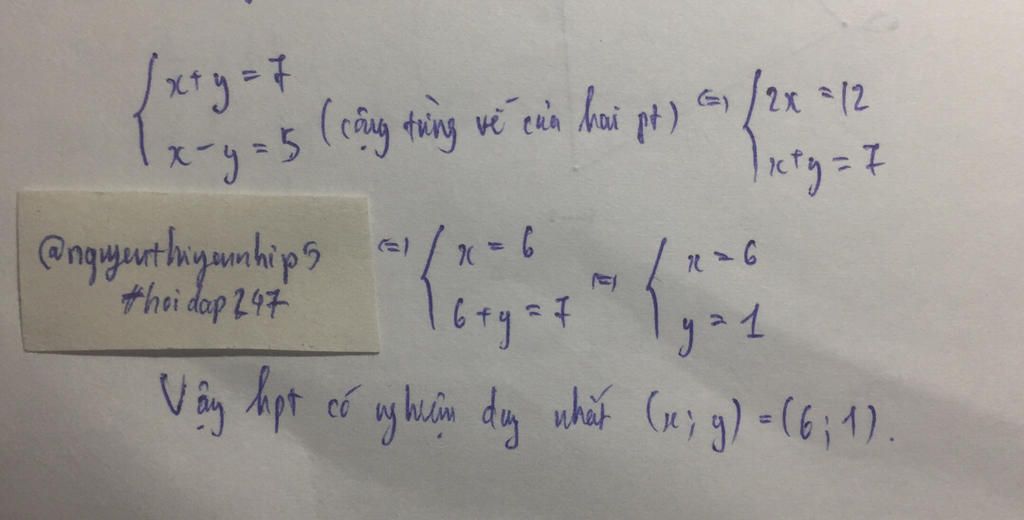 { x + y = 7
x - y = 5 (cộng từng vế của hai pt) <=> { 2x = 12
x + y = 7
@nguyenthiyennhip5
#hoidap247
<=> { x = 6
6 + y = 7 <=> { x = 6
y = 1
Vậy hpt có nghiệm duy nhất (x; y) = (6; 1).